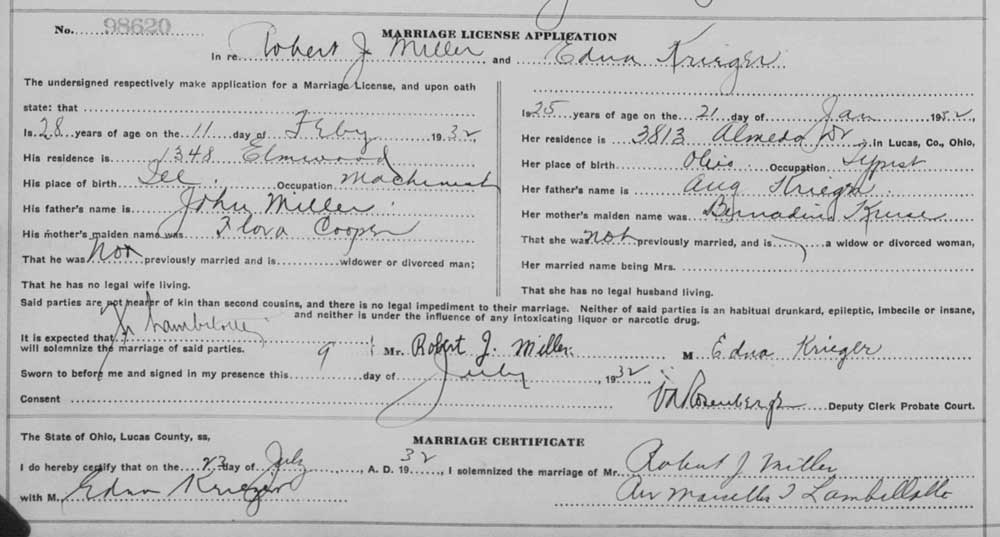 No. 98620
MARRIAGE LICENSE APPLICATION
In re Robert J. Miller and Edna Krieger
The undersigned respectively make application for a Marriage License, and upon oath
state: that
Is 28 years of age on the 11 day of Feby 1932
His residence is 1348 Elmwood
His place of birth Ill. Occupation Machinist
His father's name is John Miller
His mother's maiden name was Flora Cooper
That he was Not previously married and is widower or divorced man;
That he has no legal wife living.
Is 25 years of age on the 21 day of Jan 1932,
Her residence is 3813 Almeda Dr in Lucas, Co., Ohio,
Her place of birth Ohio Occupation Typist
Her father's name is Aug Krieger
Her mother's maiden name was Bernadine Kruse
That she was not previously married, and is a widow or divorced woman,
Her married name being Mrs.
That she has no legal husband living.
Said parties are not nearer of kin than second cousins, and there is no legal impediment to their marriage. Neither of said parties is an habitual drunkard, epileptic, imbecile or insane,
and neither is under the influence of any intoxicating liquor or narcotic drug.
It is expected that
will solemnize the marriage of said parties. Mr. Robert J. Miller M Edna Krieger
Sworn to before me and signed in my presence this 9 day of July, 1932
Consent Rosenberg Deputy Clerk Probate Court.
The State of Ohio, Lucas County, ss,
MARRIAGE CERTIFICATE
I do hereby certify that on the 23 day of July, A. D. 1932, I solemnized the marriage of Mr. Robert J Miller
with M. Edna Krieger